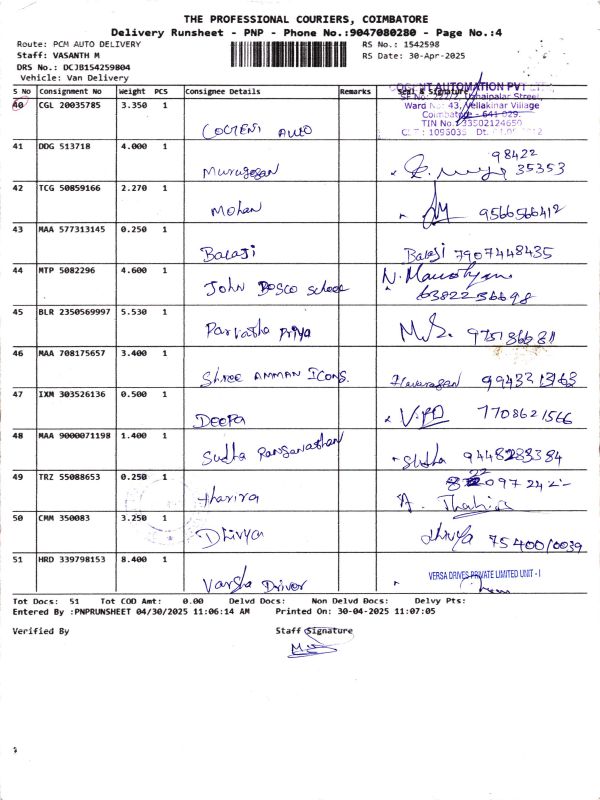 THE PROFESSIONAL COURIERS, COIMBATORE
Delivery Runsheet - PNP - Phone No.:9047080280 - Page No.:4
Route: PCM AUTO DELIVERY
RS No.: 1542598
Staff: VASANTH M
RS Date: 30-Apr-2025
DRS No.: DCJB154259804
Vehicle: Van Delivery
S No Consignment No Weight PCS Consignee Details Remarks Seal & Signature
40 CGL 20035785 3.350 1
AUTOMATION PVT
Street,
Ward No: 43, Vellakinar Village
Coimbatore - 641 029.
TIN No.:33502124650
41 DDG 513718 4.000 1
Murugesan
98422
35353
42 TCG 50859166 2.270 1
Mohan 9566566412
43 MAA 577313145 0.250 1
Balaji Balaji 7907448435
44 MTP 5082296 4.600 1
John Bosco School
6382256698
45 BLR 2350569997 5.530 1
Parvatha Priya M.S.
46 MAA 708175657 3.400 1
Shree AMMAN ICONS.
47 IXM 303526136 0.500 1
DEEPA 7708621566
48 MAA 9000071198 1.400 1
Sudha Ranganathan Sudha
49 TRZ 55088653 0.250 1
50 CMM 350083 3.250 1
Dhivya Dhivya
51 HRD 339798153 8.400 1
Varsha Driver
VERSA DRIVES PRIVATE LIMITED UNIT - I
Tot Docs: 51 Tot COD Amt: 0.00 Delvd Docs: Non Delvd Docs: Delvy Pts:
Entered By :PNPRUNSHEET 04/30/2025 11:06:14 AM Printed On: 30-04-2025 11:07:05
Verified By Staff Signature